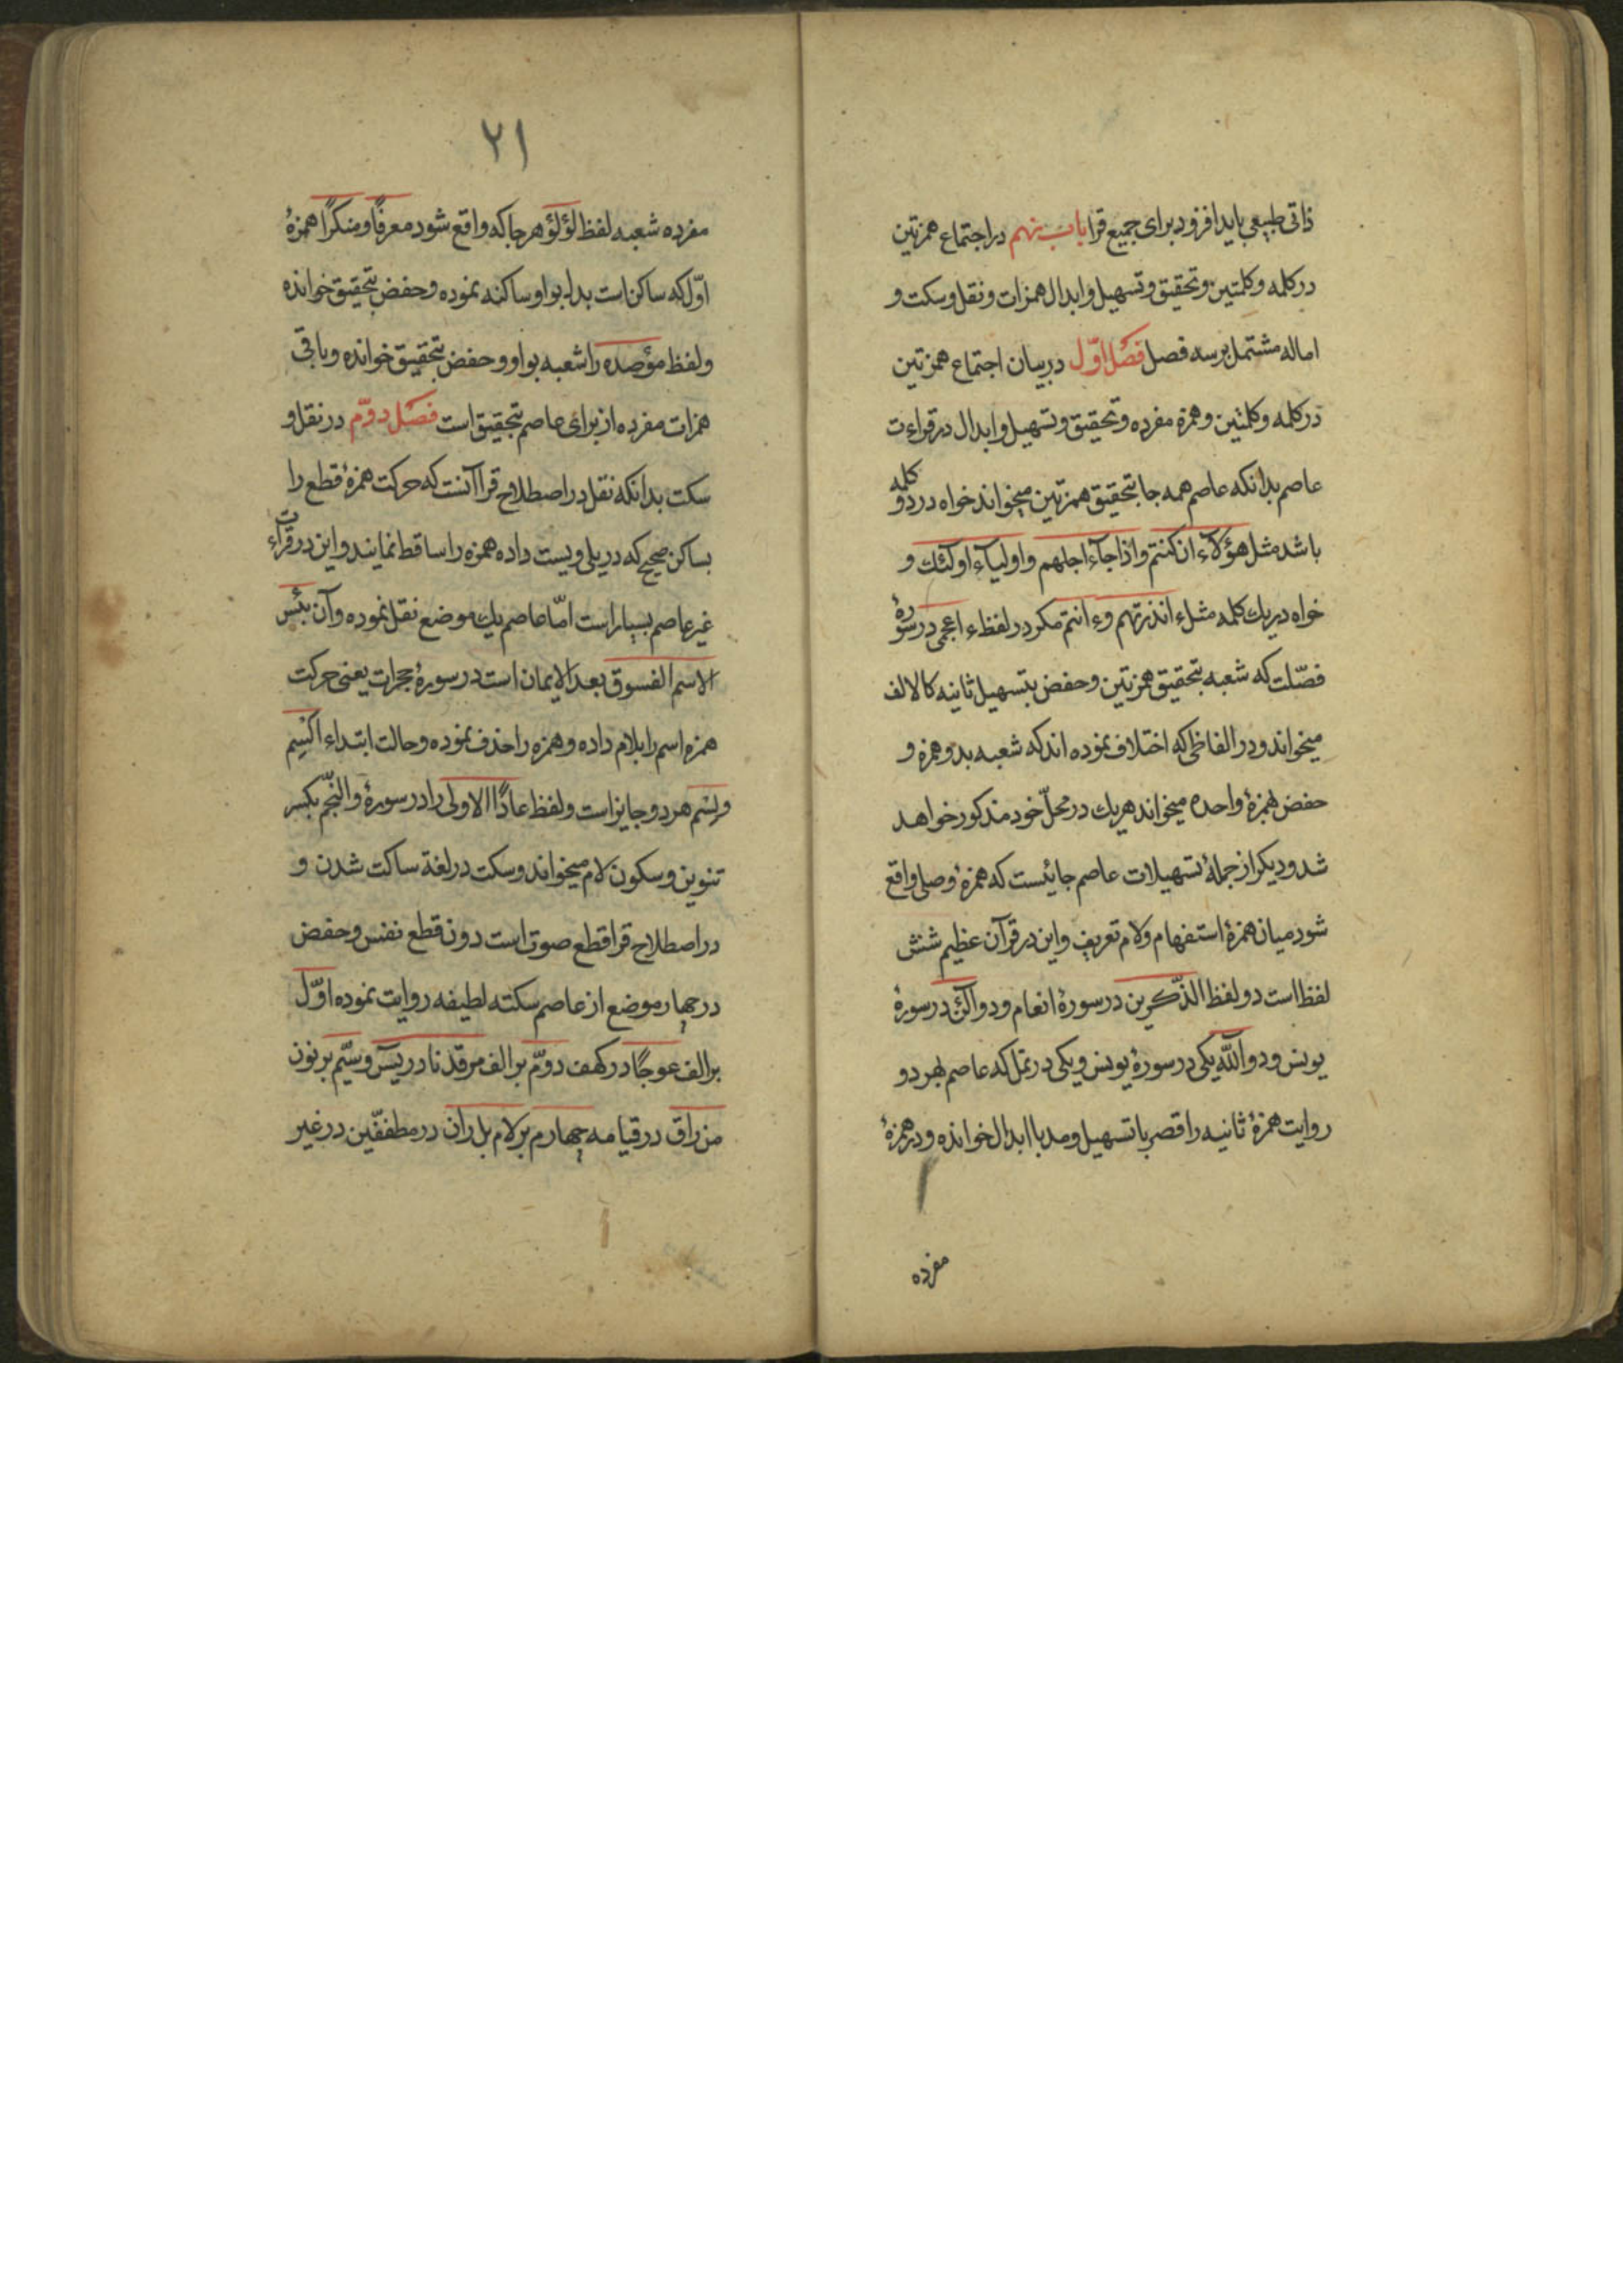 ذاتی طبیعی باید افزود برای جمیع قرا باب نهم در اجتماع همزتین
در کلمه و کلمتین و تحقیق و تسهیل و ابدال همزات و نقل و سکت و
اماله مشتمل بر سه فصل فصل اوّل در بیان اجتماع همزتین
در کلمه و کلمتین و همزه مفرده و تحقیق و تسهیل و ابدال در قراءت
عاصم بدانکه عاصم همه جا بتحقیق همزتین میخواند خواه در دو کلمه
باشد مثل هؤلآء ان کنتم و اذا جآء اجلهم و اولیآء اولئک و
خواه در یک کلمه مثل ءانذرتهم و ءانتم مکر در لفظ ءاعجمی در سورهٔ
فصّلت که شعبه بتحقیق همزتین و حفض بتسهیل ثانیه کالالف
میخواند و در الفاظی که اختلاف نموده اند که شعبه بدو همزه و
حفض بهمزهٔ واحده میخواند هریک در محلّ خود مذکور خواهد
شد و دیکر از جملهٔ تسهیلات عاصم جائیست که همزهٔ وصلی واقع
شود میان همزهٔ استفهام و لام تعریف و این در قرآن عظیم شش
لفظ است دو لفظ الذّکرین در سورهٔ انعام و دو آلئن در سورهٔ
یونس و دو آللّه یکی در سورهٔ یونس و یکی در نمل که عاصم بهر دو
روایت همزهٔ ثانیه را قصر با تسهیل و مد با ابدال خوانده و در همزهٔ
مفرده
۲۱
مفرده شعبه لفظ لؤلؤ هر جا که واقع شود معرفًا و منکرًا همزهٔ
اوّل که ساکن است بدل بواو ساکنه نموده و حفض بتحقیق خوانده
و لفظ مؤصده را شعبه بواو و حفض بتحقیق خوانده و باقی
همزات مفرده از برای عاصم بتحقیق است فصل دوّم در نقل و
سکت بدانکه نقل در اصطلاح قرا آنست که حرکت همزهٔ قطع را
بساکن صحیح که در یلی ویست داده همزه را ساقط نمایند و این در قراءت
غیر عاصم بسیار است امّا عاصم یک موضع نقل نموده و آن بئس
الاسم الفسوق بعد الایمان است در سورهٔ حجرات یعنی حرکت
همزه اسم را بلام داده و همزه را حذف نموده و حالت ابتداء الِسم
و لِسم هر دو جایز است و لفظ عادًا الاولی را در سورهٔ والنجّم بکسر
تنوین و سکون لام میخواند و سکت در لغة ساکت شدن و
در اصطلاح قرا قطع صوت است دون قطع نفس و حفض
در چهار موضع از عاصم سکته لطیفه روایت نموده اوّل
بر الف عوجًا در کهف دوّم بر الف مرقدنا در یسٓ و سیّم بر نون
من راق در قیامه چهارم بر لام بل ران در مطففّین در غیر